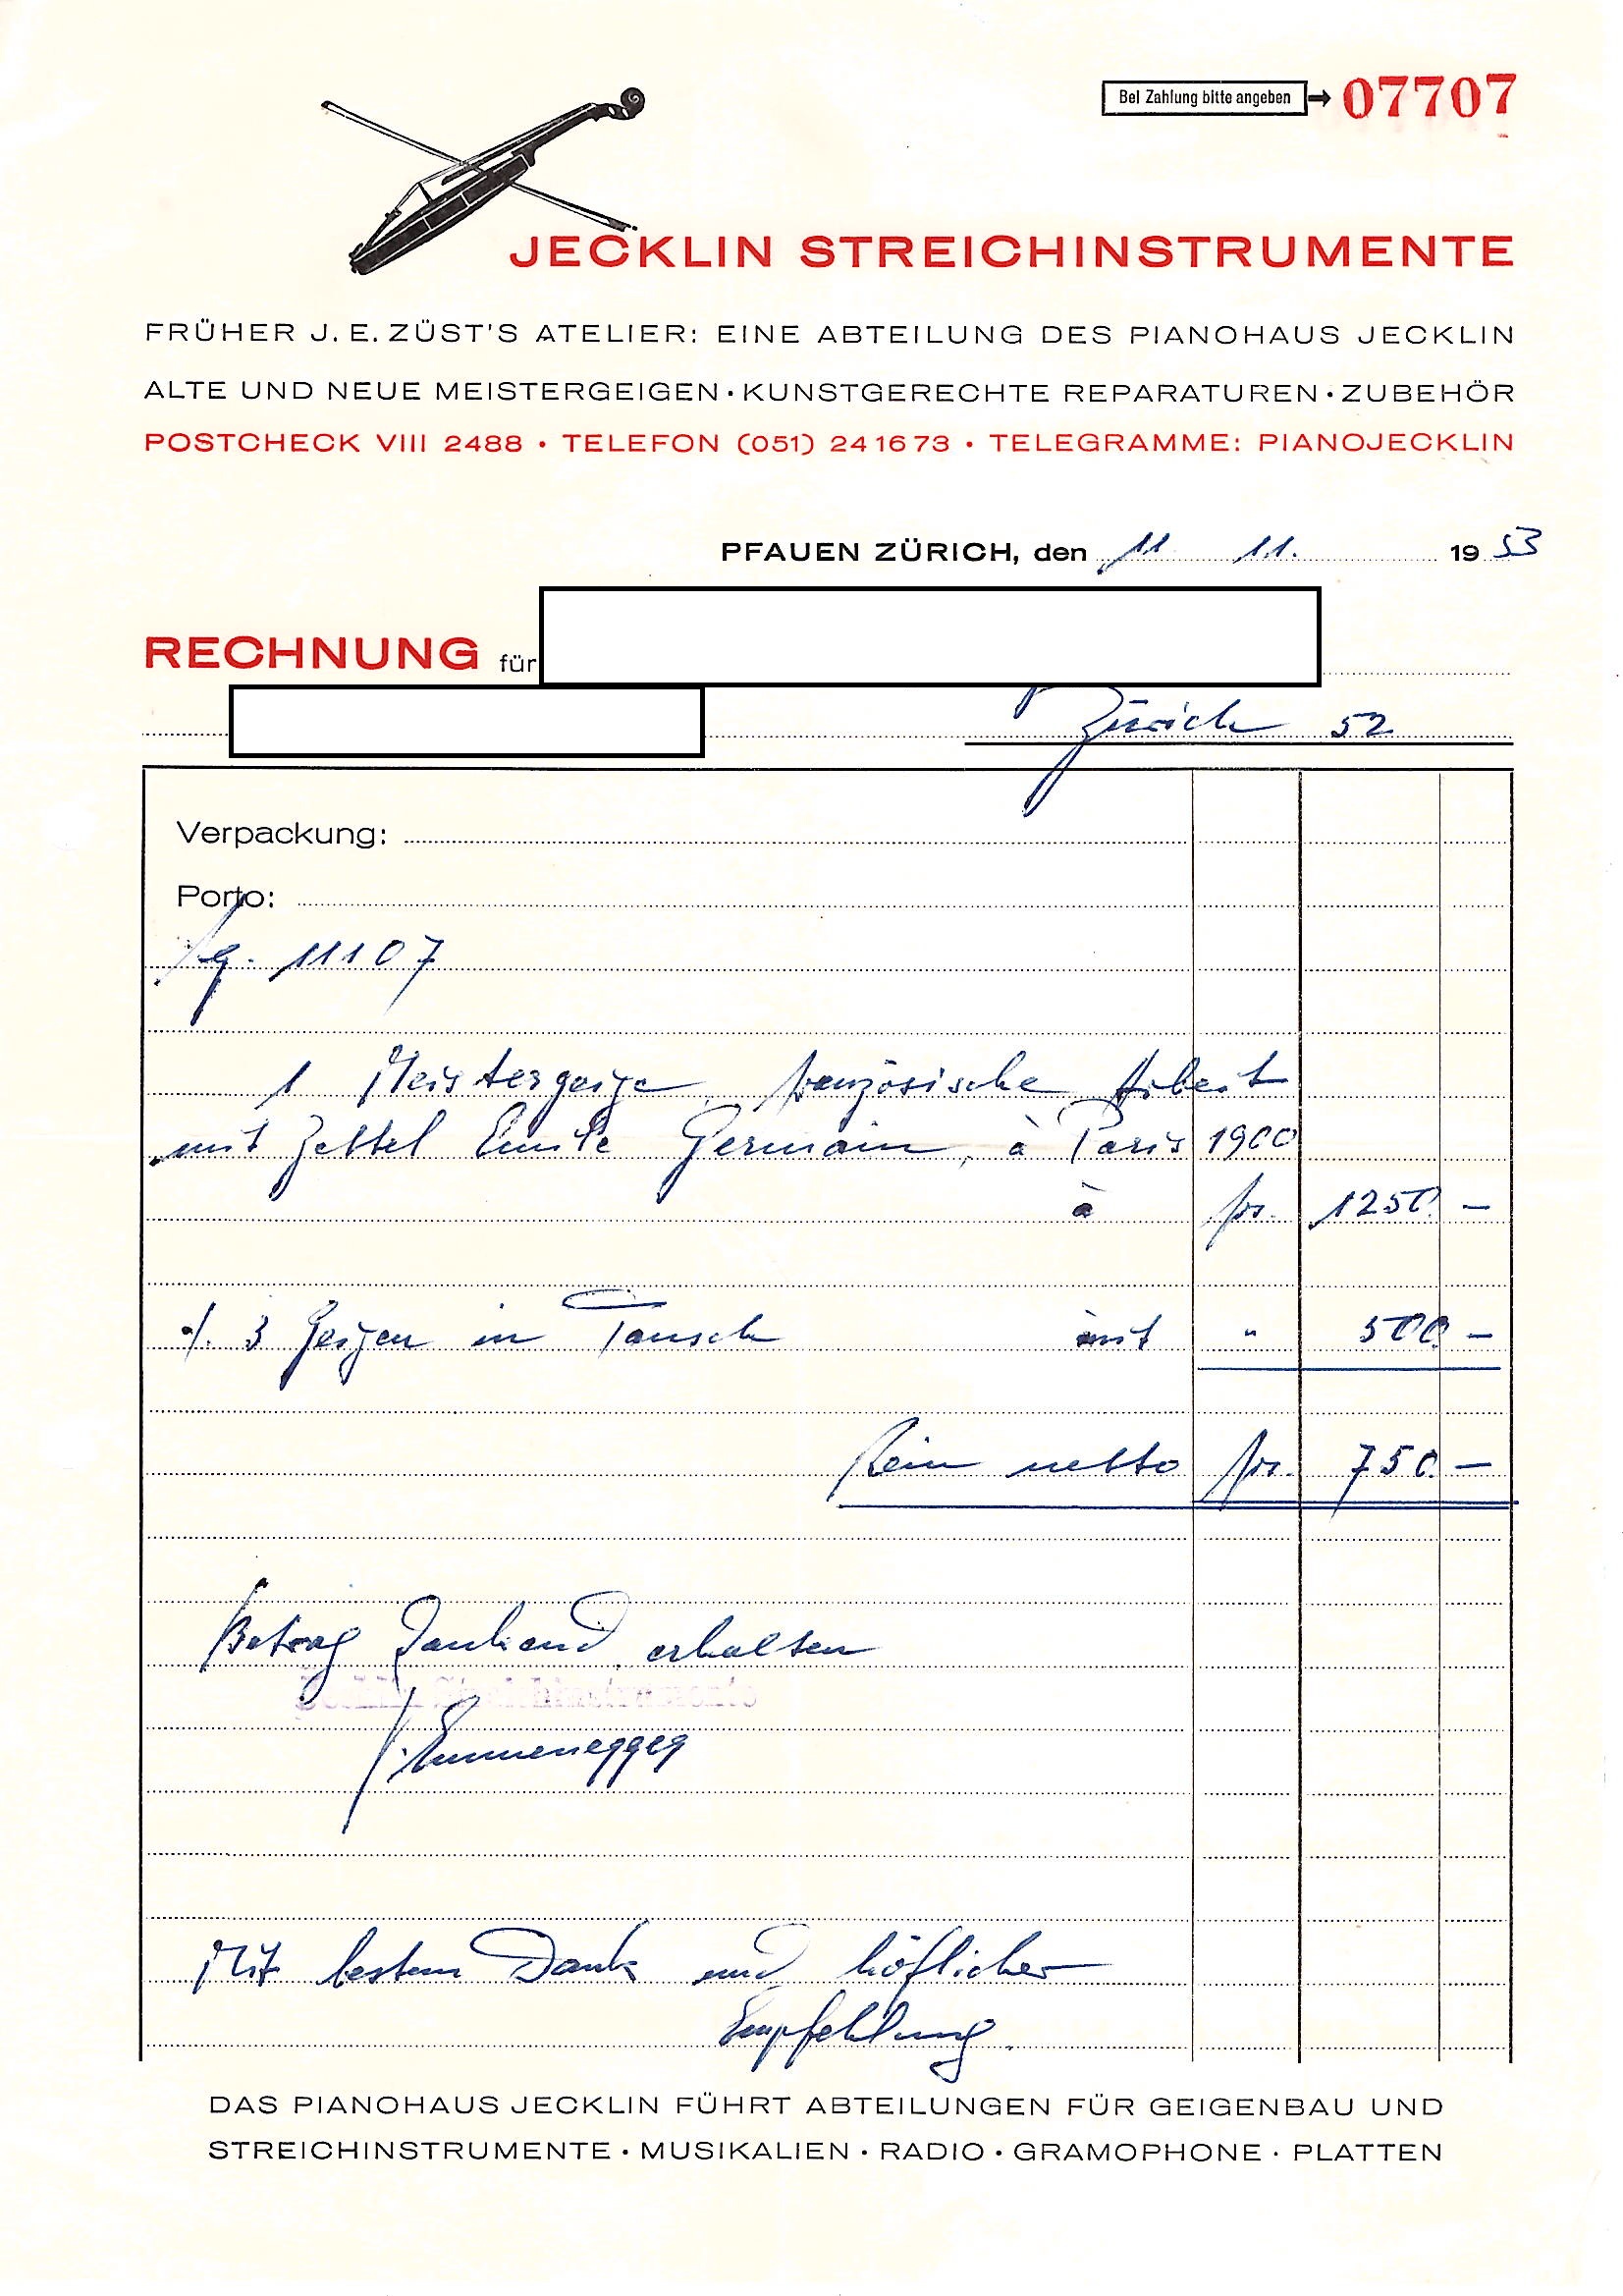 Bei Zahlung bitte angeben → 07707
JECKLIN STREICHINSTRUMENTE
FRÜHER J. E. ZÜST'S ATELIER: EINE ABTEILUNG DES PIANOHAUS JECKLIN
ALTE UND NEUE MEISTERGEIGEN · KUNSTGERECHTE REPARATUREN · ZUBEHÖR
POSTCHECK VIII 2488 · TELEFON (051) 24 16 73 · TELEGRAMME: PIANOJECKLIN
PFAUEN ZÜRICH, den 11 11. 19 53
RECHNUNG für
Zürich 52
Verpackung:
Porto:
11107
1 Meistergeige, französische Arbeit
mit Zettel Emile Germain, à Paris 1900
à Fr. 1250.–
./. 3 Geigen in Tausch mit " 500.–
Rein netto Fr. 750.–
Betrag dankend erhalten
Mit bestem Dank und höflicher
Empfehlung.
DAS PIANOHAUS JECKLIN FÜHRT ABTEILUNGEN FÜR GEIGENBAU UND
STREICHINSTRUMENTE · MUSIKALIEN · RADIO · GRAMOPHONE · PLATTEN